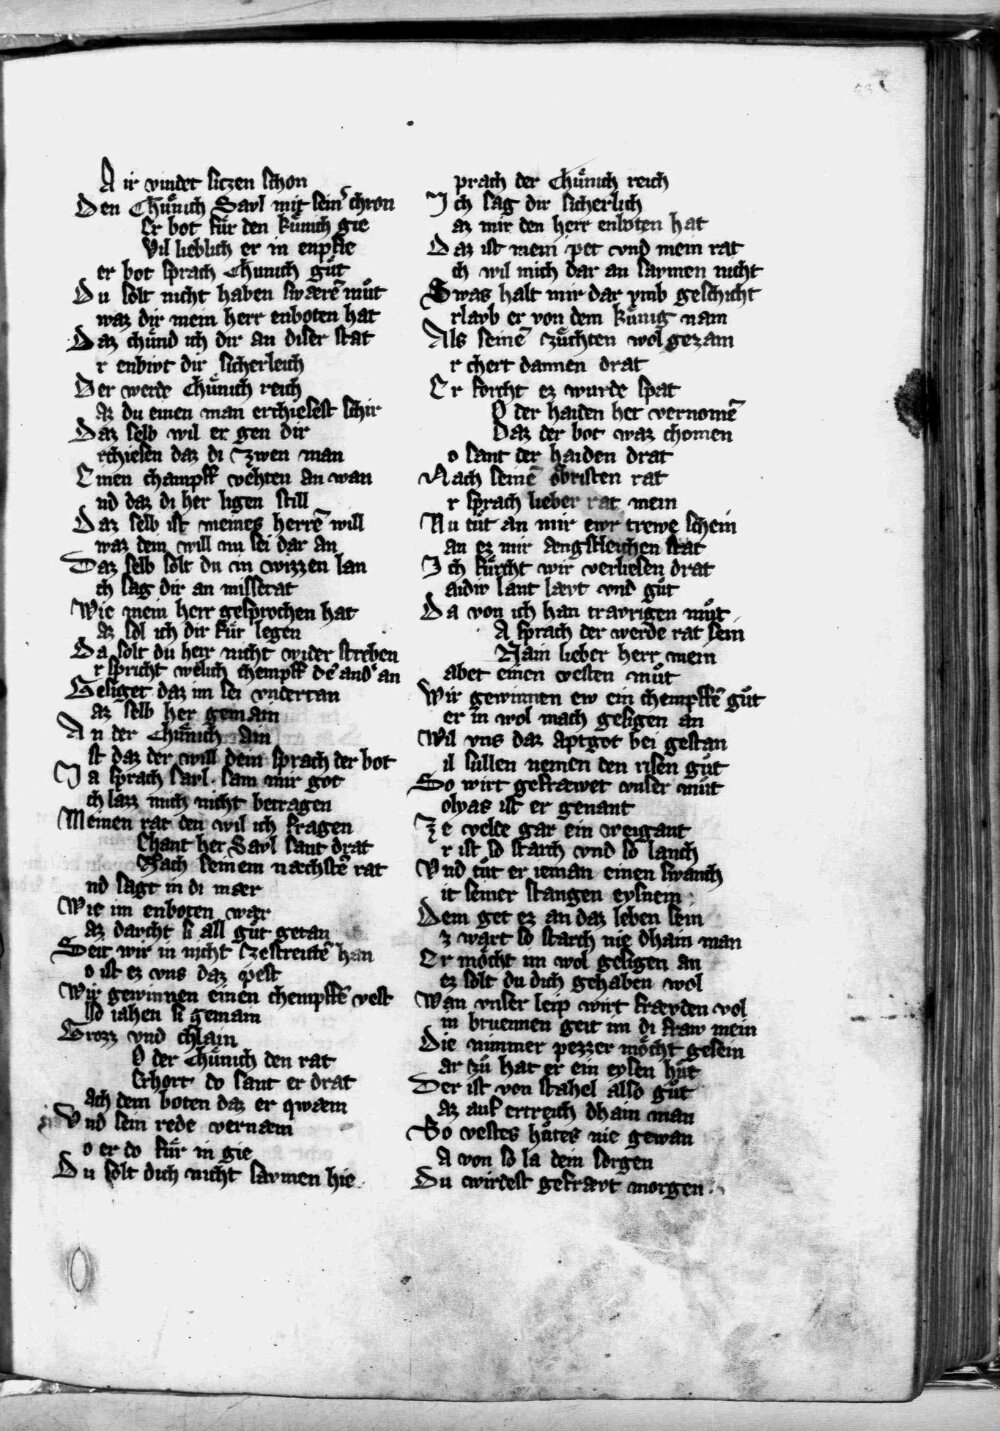 A ir vindet siczen schon
Den Chuͤnich Savl mit sein̄ chron
Er bot fuͤr den kuͤnich gie
Vil lieblich er in enpfie
er bot sprach Chunich guͤt
Du solt nicht haben swærē muͤt
waz dir mein herr enboten hat
Daz chuͤnd ich dir an diser stat
r enbivt dir sicherleich
Der werde Chuͤnich reich
az du einen man erchiesest schir
Daz selb wil er gen dir
rchiesen daz di zwen man
Einen champff vehten an wan
nd daz di her ligen still
Daz selb ist meines herrē will
waz dem will nu sei dar an
Daz selb solt du in wizzen lan
ch sag dir an missetat
Wie mein herr gesprochen hat
az sol ich dir fuͤr legen
Da solt du herr nicht wider streben
r spricht welich chempff dē and' an
Gesiget daz im sei vndertan
az selb her gemain
An der Chuͤnich ain
st daz der will dein sprach der bot
Ja sprach savl sam mir got
ch lazz mich nicht betragen
Meinen rat den wil ich fragen
Chant her Savl sant drat
Nach seinem næchstē rat
nd sagt in di mær
Wie im enboten wær
az darcht si all guͤt getan
Seit wir in nicht zestreitē han
o ist ez vns daz pest
Wir gewinnen einen chempffē vest
lso iahen si gemain
Grozz vnd chlain
O der Chuͤnich den rat
Erhort do sant er drat
ach dem boten daz er qwæm
Vnd sein rede vernæm
o er do fuͤr in gie
Du solt dich nicht savmen hie
prach der Chuͤnich reich
Ich sag dir sicherlich
az mir den herr enboten hat
Daz ist mein pet vnd mein rat
ch wil mich dar an savmen nicht
Swas halt mir dar vmb geschicht
rlavb er von dem kuͤnig nam
Als seinē zuͤchten wol gezam
r chert dannen drat
Er forcht ez wurde spat
O der haiden het vernomē
Daz der bot waz chomen
o sant der haiden drat
Nach seinē obristen rat
r sprach lieber rat mein
Nu tuͤt an mir ewr trewe schein
an ez mir ængstleichen stat
Ich fuͤrcht wir verliesen drat
aidiv lant lævt vnd guͤt
Da von ich han travrigen muͤt
A sprach der werde rat sein
Nain lieber herr mein
abet einen vesten muͤt
Wir gewinnen ew ein chempffē guͤt
er in wol mach gesigen an
Wil vns daz aptgot bei gestan
il suͤllen nemen den risen guͤt
So wirt gefræwet vnser muͤt
olyas ist er genant
Ze velde gar ein weigant
r ist so starch vnd so lanch
Vnd tuͤt er ieman einen swanch
it seiner stangen eysnein
Dem get ez an daz leben sein
z wart so starch nie dhain man
Er moͤcht im wol gesigen an
ez solt du dich gehaben wol
Wan vnser leip wirt fræuden vol
in bruennen geit im di fraw mein
Die nimmer pezzer moͤcht gesein
ar zuͤ hat er ein eysen huͤt
Der ist von stahel also guͤt
az auf ertreich dhain man
So vestes huͤtes nie gewan
A von so la dein sorgen
Du wirdest gefrævt morgen